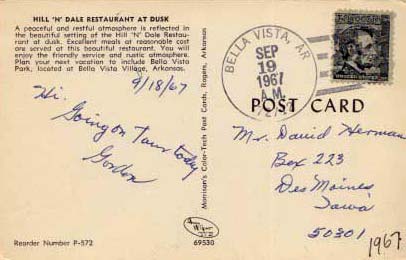 HILL 'N' DALE RESTAURANT AT DUSK
A peaceful and restful atmosphere is reflected in
the beautiful setting of the Hill 'N' Dale Restau-
rant at dusk. Excellent meals at reasonable cost
are served at this beautiful restaurant. You will
enjoy the friendly service and rustic atmosphere.
Plan your next vacation to include Bella Vista
Park, located at Bella Vista Village, Arkansas.
9/18/67
Hi.
Going on Tour today
Gordon
Reorder Number P-572
Morrison's Color-Tech Post Cards, Rogers, Arkansas
69530
BELLA VISTA, AR
SEP
19
1967
A.M.
POST CARD
Mr. David Herman
Box 223
Des Moines
Iowa
50301
1967